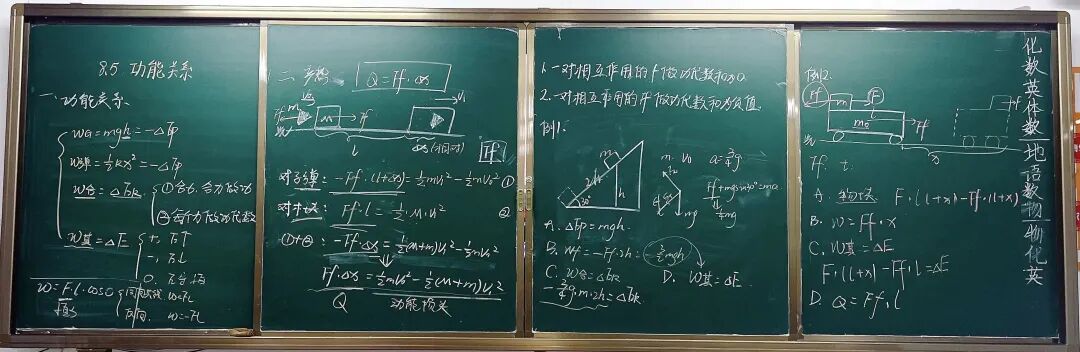 8.5 功能关系
一、功能关系
WG=mgh=-ΔEp
W弹=½kx²=-ΔEp
W合=ΔEk
①合力,合力做功
②每个力做功代数
W其=ΔE
+, E↑
-, E↓
0,
W=F·l·cosθ
同向 W=FL
反向, W=-FL
二、
Q=Ff·Δx
v0
v1
m
M
Ff
l
Δx(相对)
Ff
对子弹: -Ff·(l+Δx)=½mv1²-½mv0² ①
对木块: Ff·l=½Mv1² ②
①+②: -Ff·Δx=½(M+m)v1²-½mv0²
Ff·Δx=½mv0²-½(M+m)v1²
Q
动能损失
1.一对相互作用的f做功代数和为0.
2.一对相互作用的Ff做功代数和为负值.
例1.
m
2h
h
30°
m v0 a=¾g
Ff+mgsin30°=ma
mg
A. ΔEp=mgh.
B. Wf=-Ff·2h=-½mgh
C. W合=ΔEk
D. W其=ΔE.
-¾g·m·2h=ΔEk
例2.
Ff
m
F
l
m0
Ff
x
Ff t.
A. 物块 F·(l+x)-Ff·(l+x)
B. W=Ff·x
C. W其=ΔE
F·(l+x)-Ff·l=ΔE
D. Q=Ff·l
化数英体数地语数物物化英